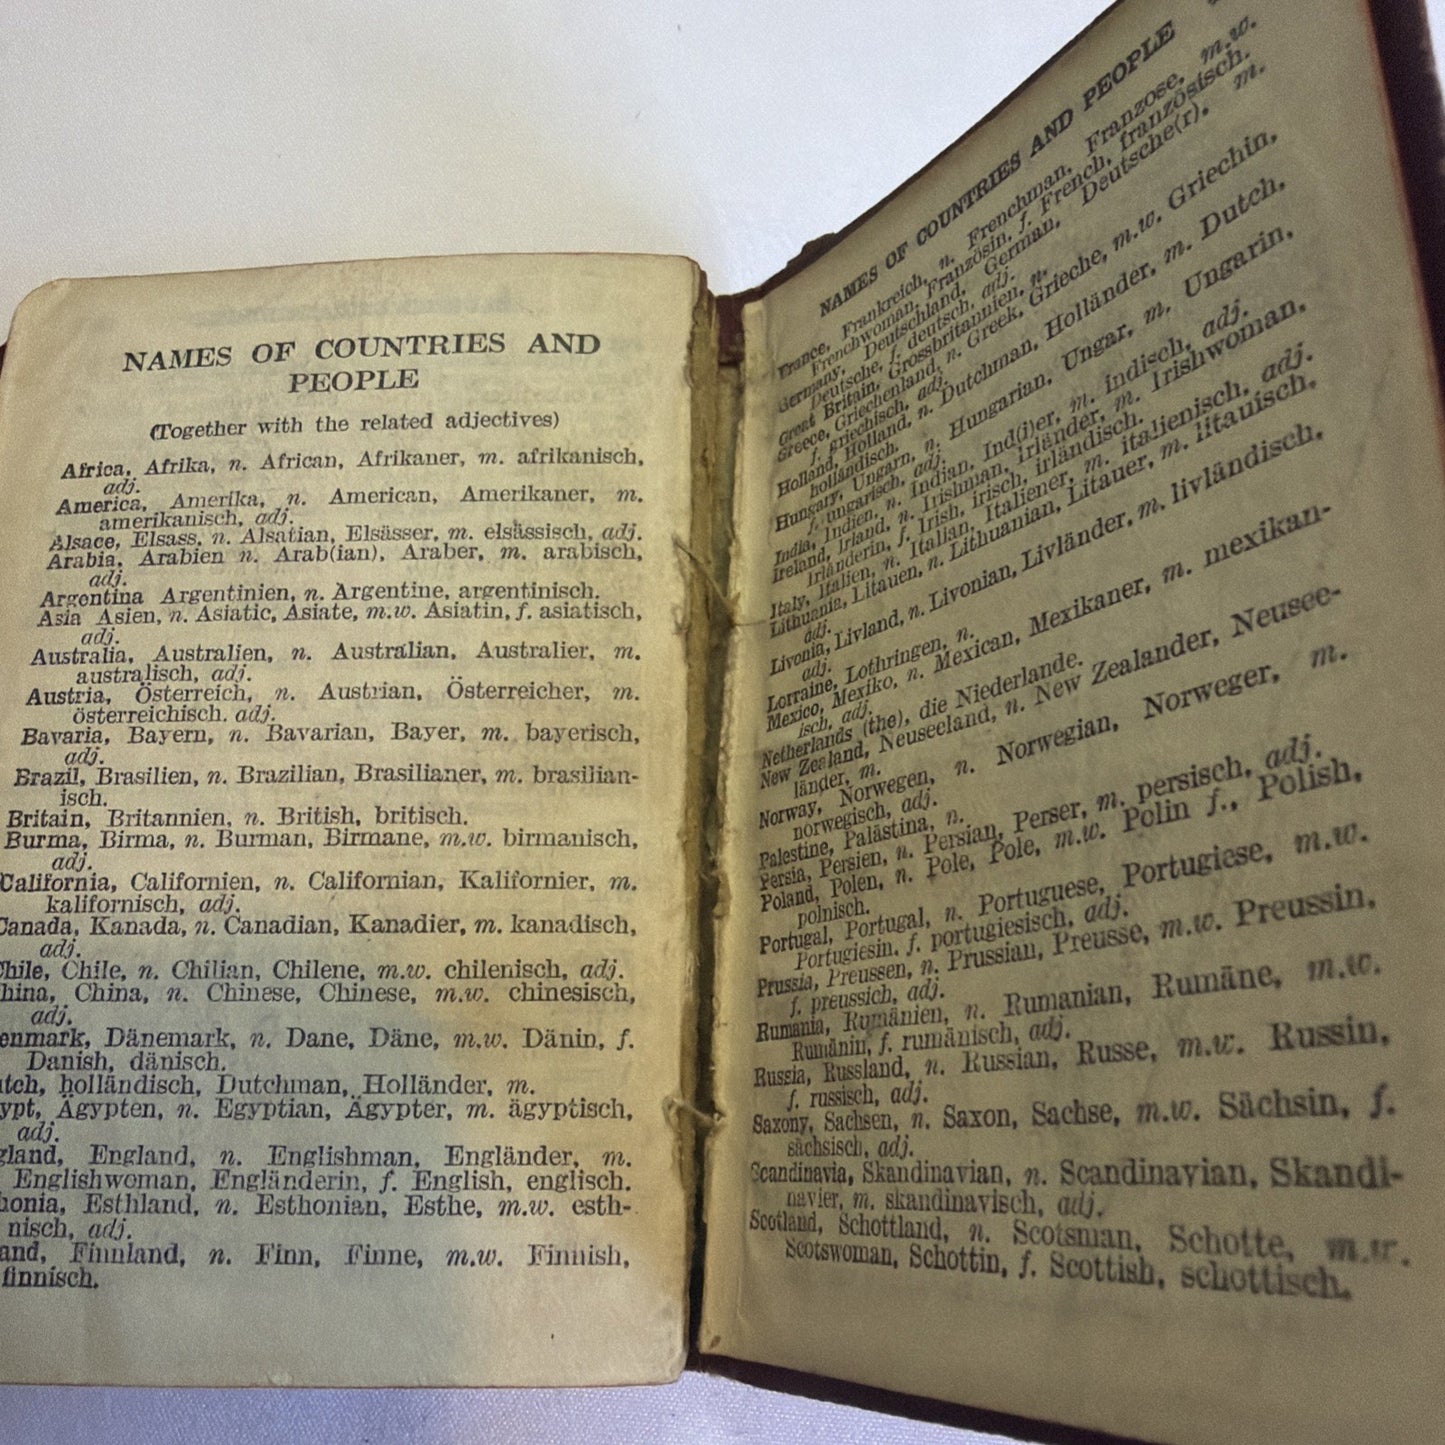 NAMES OF COUNTRIES AND
PEOPLE
(Together with the related adjectives)
Africa, Afrika, n. African, Afrikaner, m. afrikanisch,
adj.
America, Amerika, n. American, Amerikaner, m.
amerikanisch, adj.
Alsace, Elsass, n. Alsatian, Elsässer, m. elsässisch, adj.
Arabia, Arabien n. Arab(ian), Araber, m. arabisch,
adj.
Argentina Argentinien, n. Argentine, argentinisch.
Asia Asien, n. Asiatic, Asiate, m.w. Asiatin, f. asiatisch,
adj.
Australia, Australien, n. Australian, Australier, m.
australisch, adj.
Austria, Österreich, n. Austrian, Österreicher, m.
österreichisch. adj.
Bavaria, Bayern, n. Bavarian, Bayer, m. bayerisch,
adj.
Brazil, Brasilien, n. Brazilian, Brasilianer, m. brasilian-
isch.
Britain, Britannien, n. British, britisch.
Burma, Birma, n. Burman, Birmane, m.w. birmanisch,
adj.
California, Californien, n. Californian, Kalifornier, m.
kalifornisch, adj.
Canada, Kanada, n. Canadian, Kanadier, m. kanadisch,
adj.
hile, Chile, n. Chilian, Chilene, m.w. chilenisch, adj.
hina, China, n. Chinese, Chinese, m.w. chinesisch,
adj.
enmark, Dänemark, n. Dane, Däne, m.w. Dänin, f.
Danish, dänisch.
tch, holländisch, Dutchman, Holländer, m.
ypt, Ägypten, n. Egyptian, Ägypter, m. ägyptisch,
adj.
gland, England, n. Englishman, Engländer, m.
Englishwoman, Engländerin, f. English, englisch.
honia, Esthland, n. Esthonian, Esthe, m.w. esth-
nisch, adj.
and, Finnland, n. Finn, Finne, m.w. Finnish,
finnisch.
NAMES OF COUNTRIES AND PEOPLE
France, Frankreich, n. Frenchman, Franzose, m.w.
Frenchwoman, Französin, f. French, französisch.
Germany, Deutschland, German, Deutsche(r), m.
Deutsche, f. deutsch, adj.
Great Britain, Grossbritannien, n.
Greece, Griechenland, n. Greek, Grieche, m.w. Griechin,
f. griechisch, adj.
Holland, Holland, n. Dutchman, Holländer, m. Dutch,
holländisch.
Hungary, Ungarn, n. Hungarian, Ungar, m. Ungarin,
f. ungarisch, adj.
India, Indien, n. Indian, Ind(i)er, m. indisch, adj.
Ireland, Irland, n. Irishman, irländer, m. Irishwoman,
Irländerin, f. Irish, irisch, irländisch.
Italy, Italien, n. Italian, Italiener, m. italienisch, adj.
Lithuania, Litauen, n. Lithuanian, Litauer, m. litauisch,
adj.
Livonia, Livland, n. Livonian, Livländer, m. livländisch,
adj.
Lorraine, Lothringen, n.
Mexico, Mexiko, n. Mexican, Mexikaner, m. mexikan-
isch, adj.
Netherlands (the), die Niederlande.
New Zealand, Neuseeland, n. New Zealander, Neusee-
länder, m.
Norway, Norwegen, n. Norwegian, Norweger, m.
norwegisch, adj.
Palestine, Palästina, n.
Persia, Persien, n. Persian, Perser, m. persisch, adj.
Poland, Polen, n. Pole, Pole, m.w. Polin f., Polish,
polnisch.
Portugal, Portugal, n. Portuguese, Portugiese, m.w.
Portugiesin, f. portugiesisch, adj.
Prussia, Preussen, n. Prussian, Preusse, m.w. Preussin,
f. preussich, adj.
Rumania, Rumänien, n. Rumanian, Rumäne, m.w.
Rumänin, f. rumänisch, adj.
Russia, Russland, n. Russian, Russe, m.w. Russin,
f. russisch, adj.
Saxony, Sachsen, n. Saxon, Sachse, m.w. Sächsin, f.
sächsisch, adj.
Scandinavia, Skandinavian, n. Scandinavian, Skandi-
navier, m. skandinavisch, adj.
Scotland, Schottland, n. Scotsman, Schotte, m.w.
Scotswoman, Schottin, f. Scottish, schottisch.